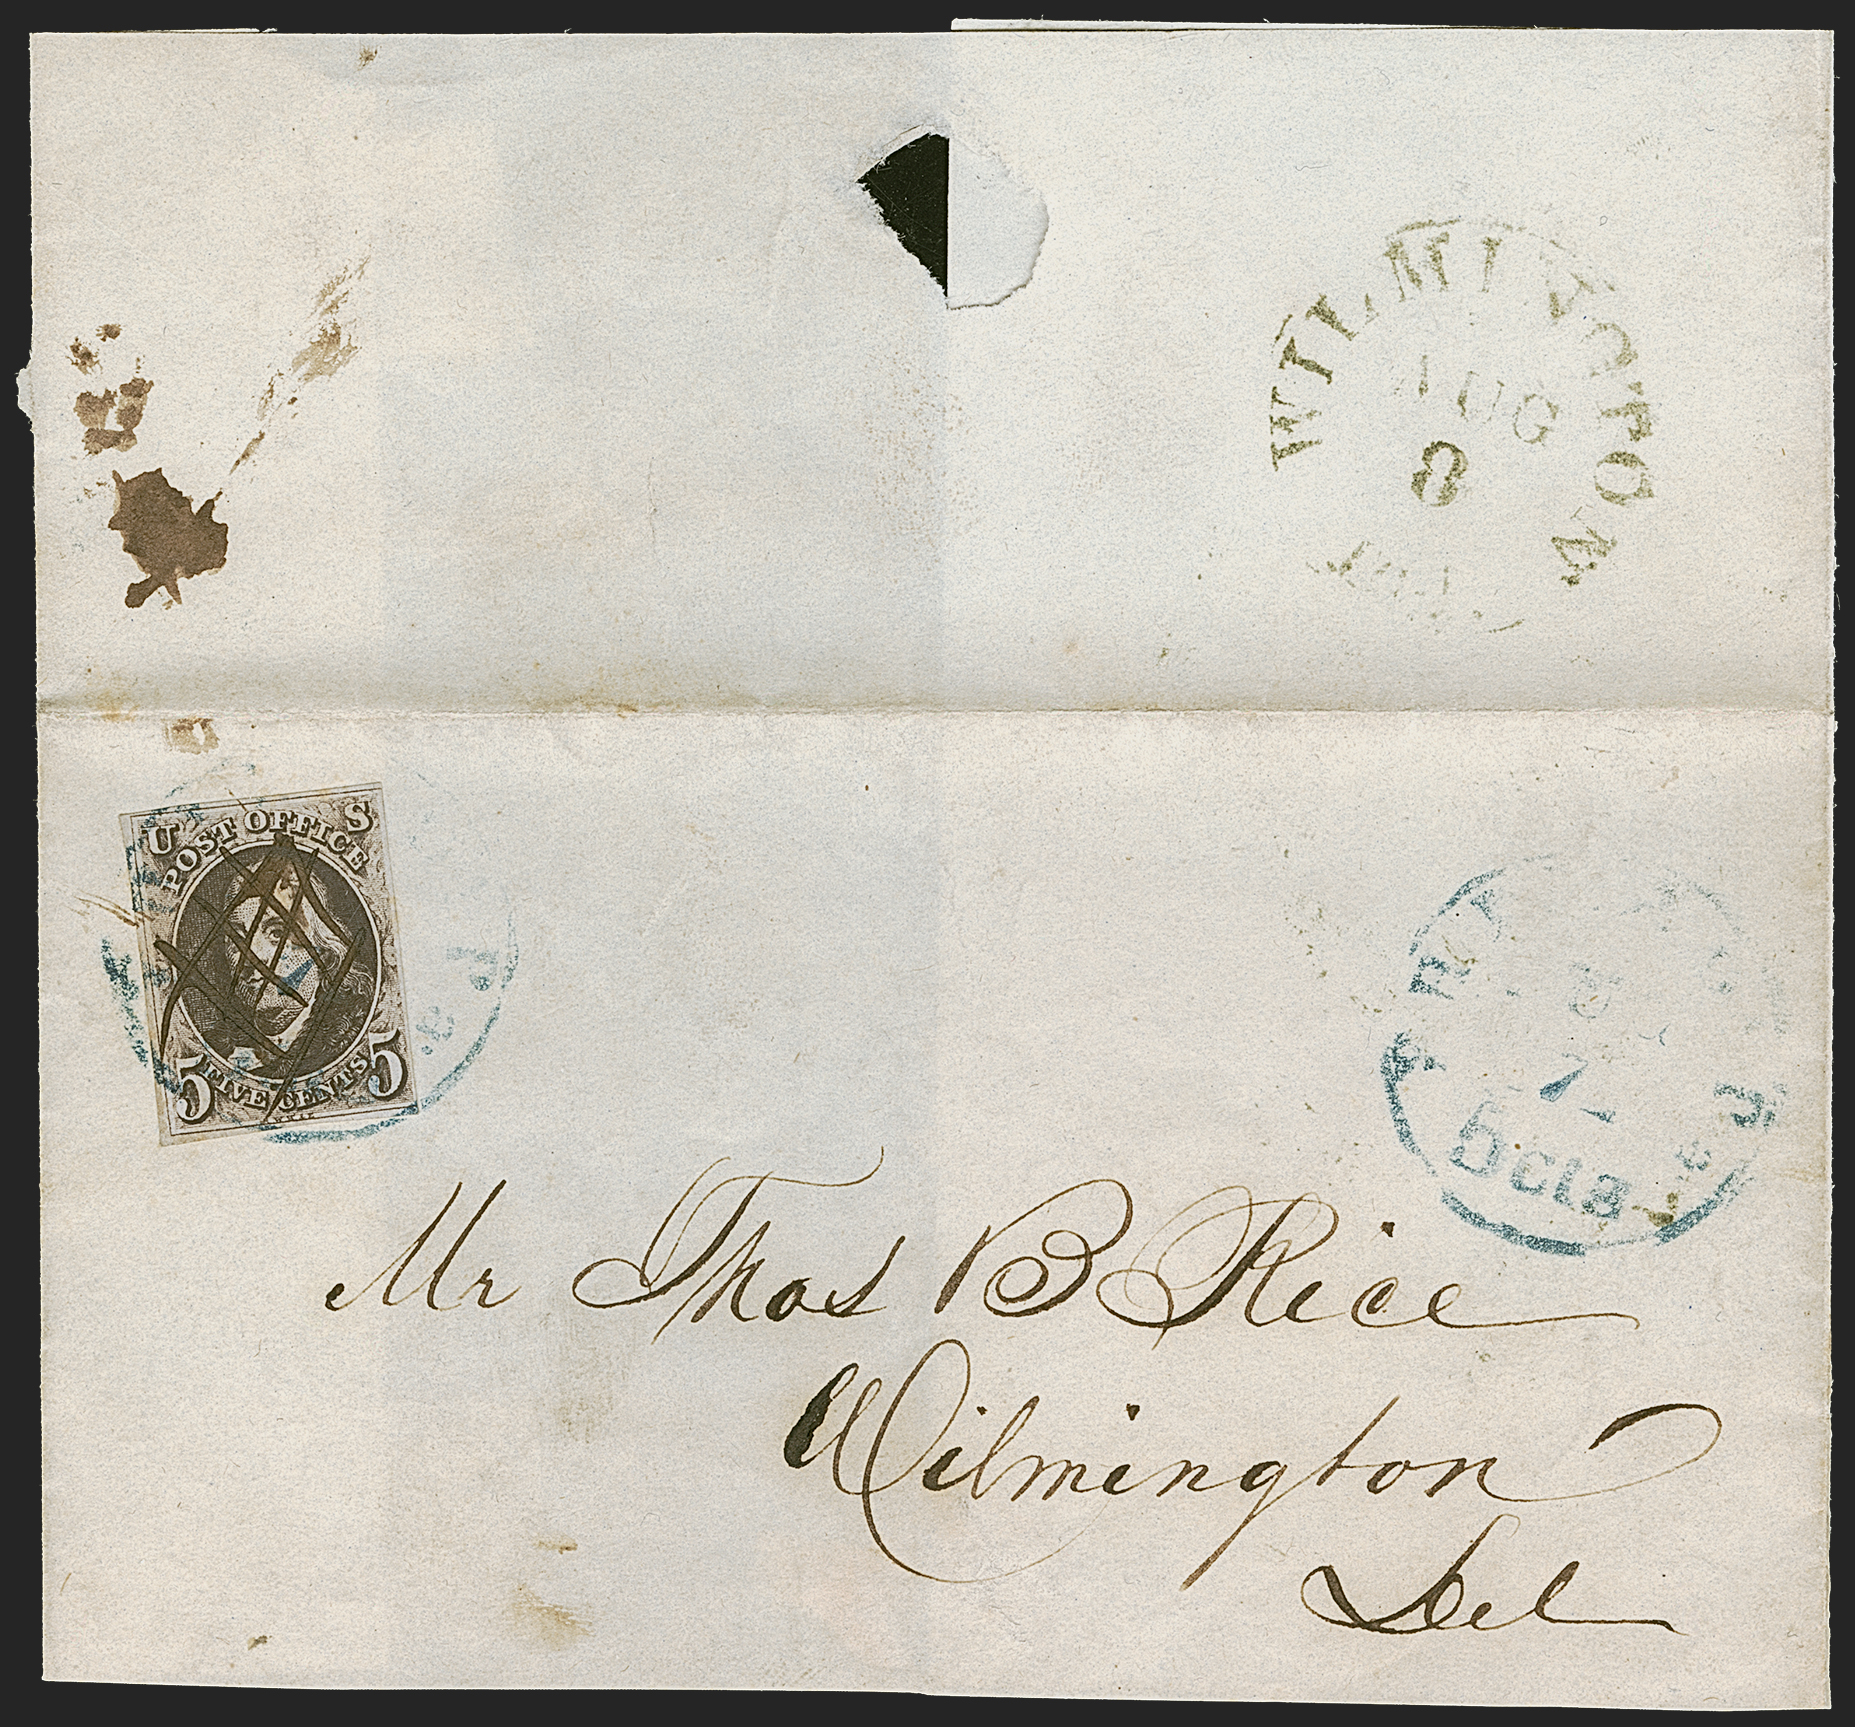 WILMINGTON
AUG
8
U S
POST OFFICE
5 FIVE CENTS 5
5 cts
Mr Thos B Rice
Wilmington
Del